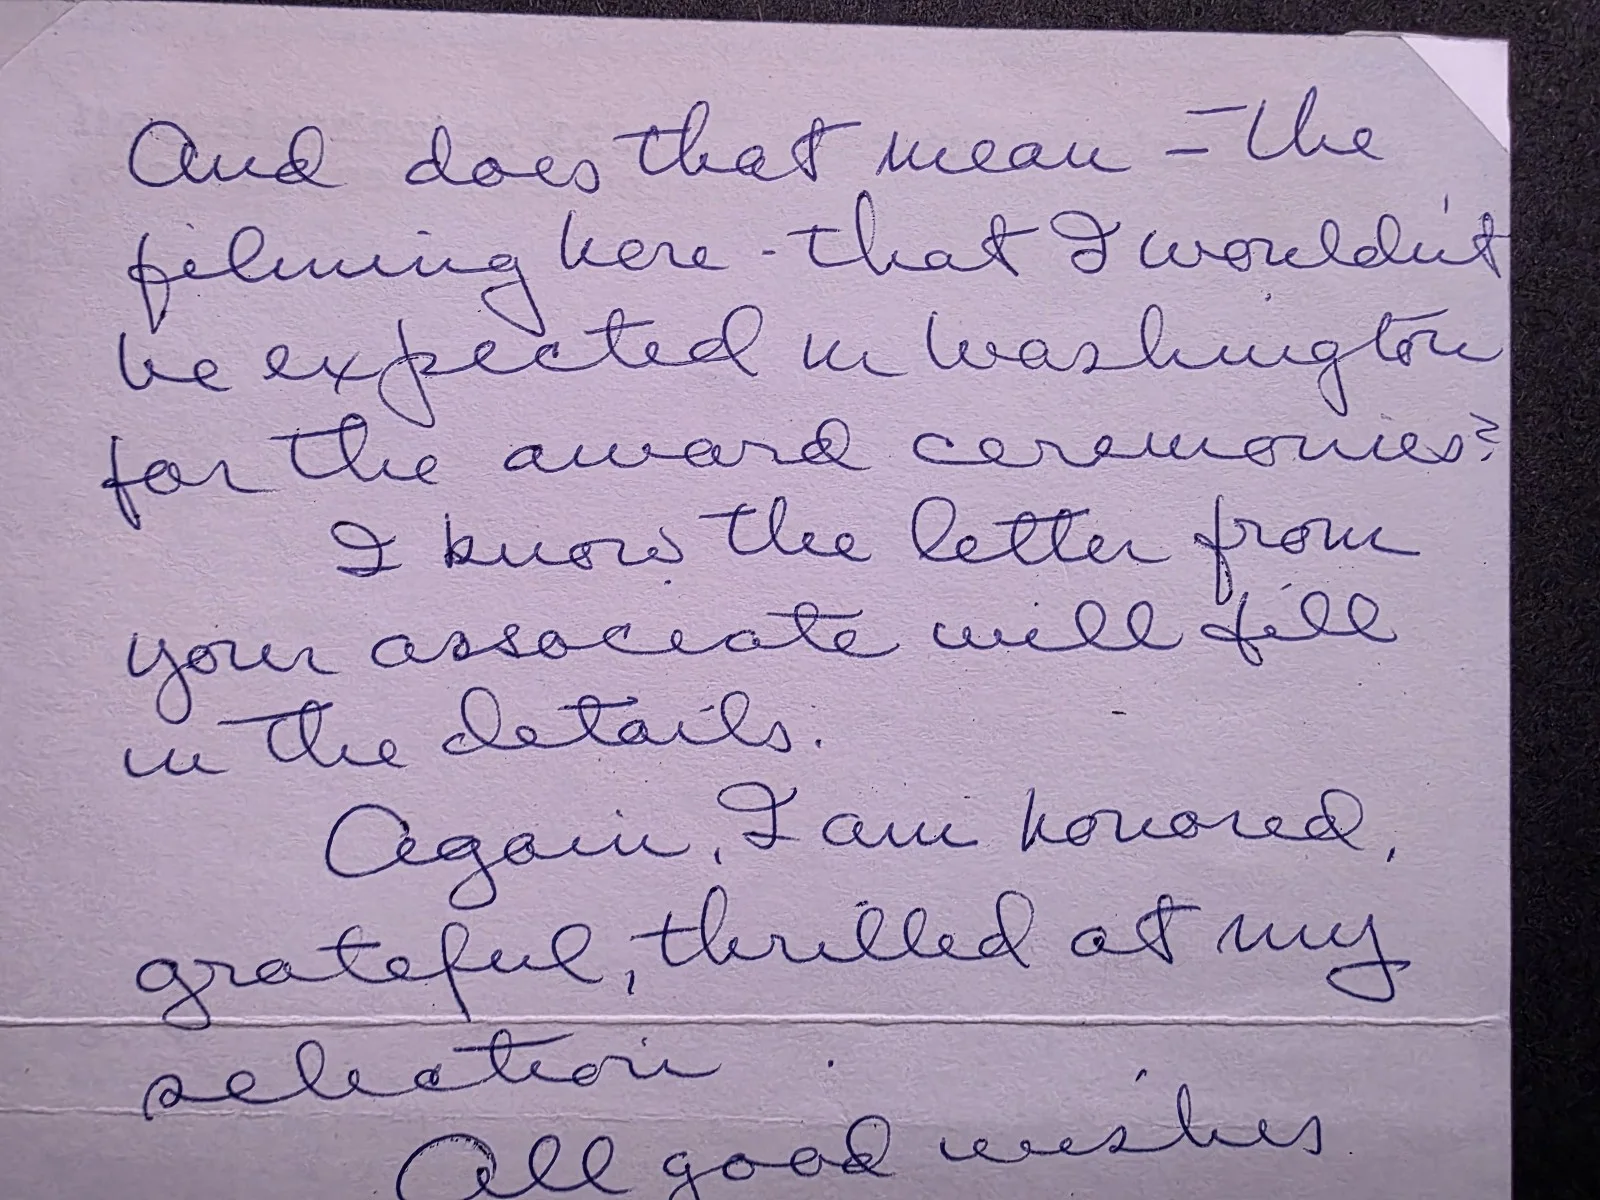 And does that mean - the
filming here - that I wouldn't
be expected in Washington
for the award ceremonies?
I know the letter from
your associate will fill
in the details.
Again, I am honored,
grateful, thrilled at my
selection.
All good wishes